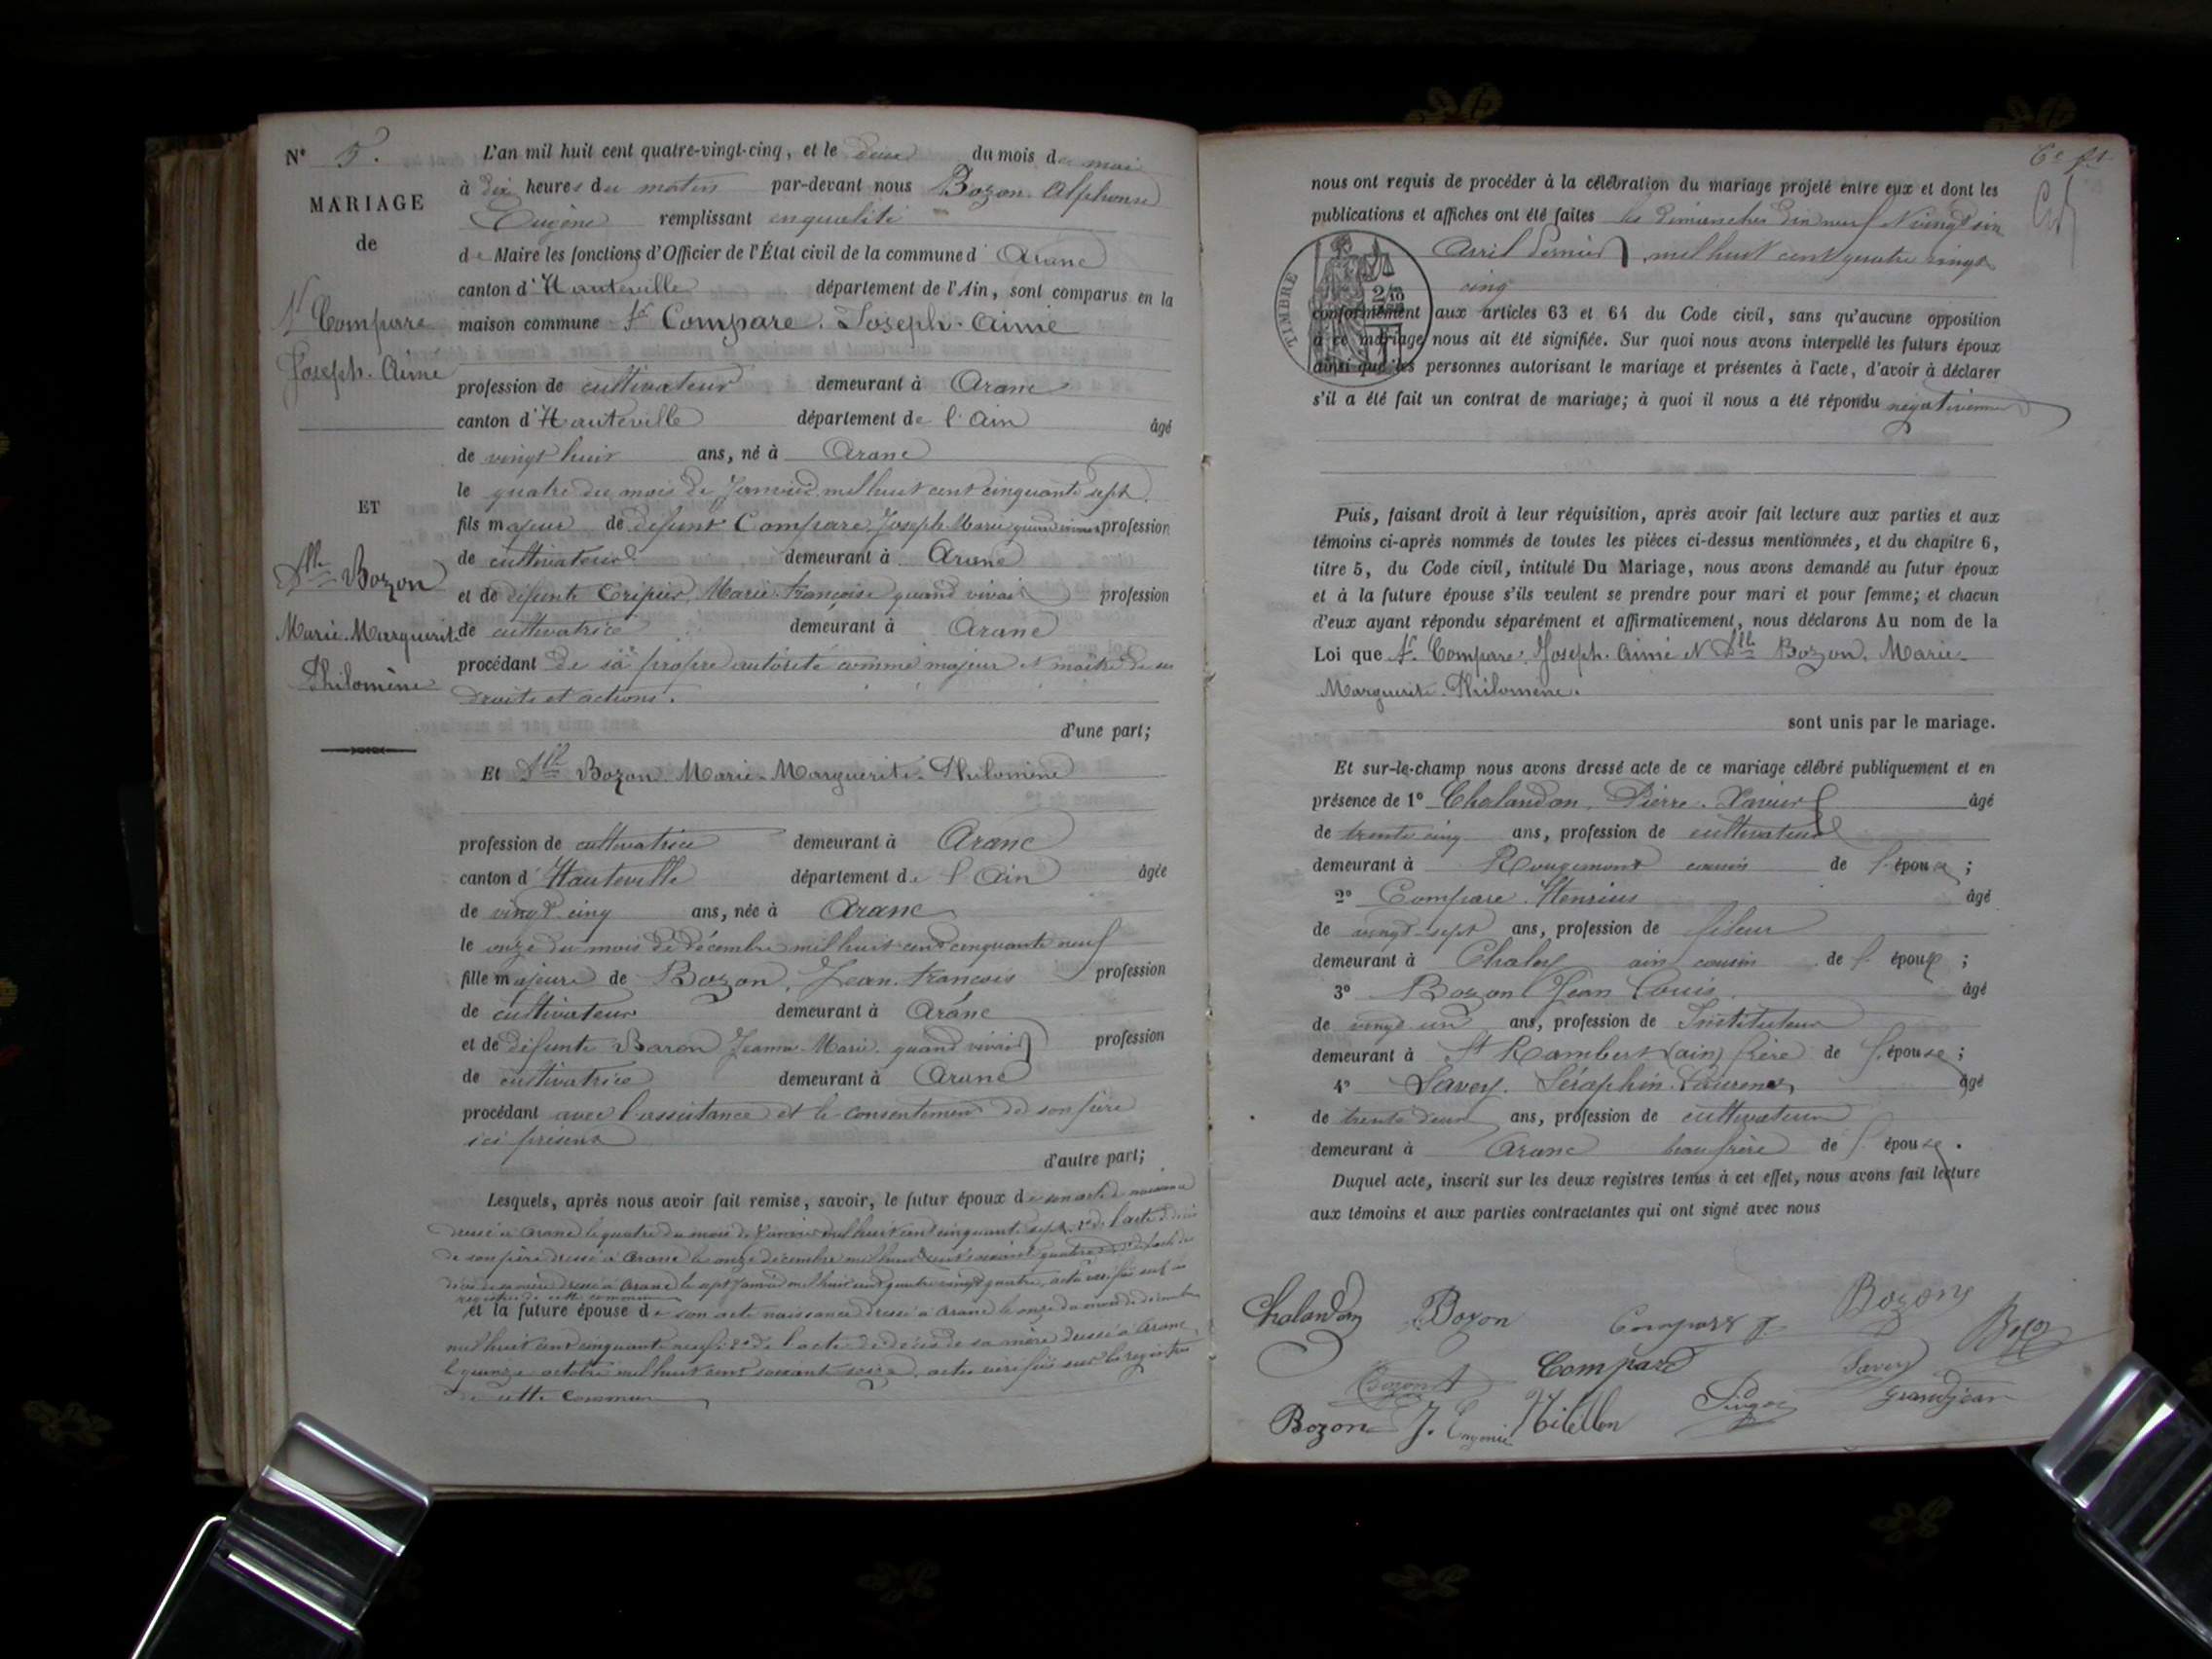 N° 5.
MARIAGE
de
Sr Comparre
Joseph-Aimé
ET
Dlle Bozon
Marie-Marguerite
Philomène
L'an mil huit cent quatre-vingt-cinq, et le deux du mois de mai
à dix heures du matin par-devant nous Bozon Alphonse
Eugène remplissant en qualité
de Maire les fonctions d'Officier de l'État civil de la commune d'Aranc
canton d'Hauteville département de l'Ain, sont comparus en la
maison commune Sr Compare. Joseph-Aimé
profession de cultivateur demeurant à Aranc
canton d'Hauteville département de l'Ain âgé
de vingt huit ans, né à Aranc
le quatre du mois de Janvier mil huit cent cinquante sept
fils majeur de défunt Compare, Joseph Marie quand vivait profession
de cultivateur demeurant à Aranc
et de défunte Cripier, Marie-Françoise quand vivait profession
de cultivatrice demeurant à Aranc
procédant de sa propre autorité comme majeur et maître de ses
droits et actions.
d'une part;
Et Dlle Bozon Marie-Marguerite-Philomène
profession de cultivatrice demeurant à Aranc
canton d'Hauteville département de l'Ain âgée
de vingt cinq ans, née à Aranc
le onze du mois de décembre mil huit cent cinquante neuf
fille majeure de Bozon, Jean-François profession
de cultivateur demeurant à Aranc
et de défunte Baron Jeanne-Marie quand vivait profession
de cultivatrice demeurant à Aranc
procédant avec l'assistance et le consentement de son père
ici présent
d'autre part;
Lesquels, après nous avoir fait remise, savoir, le futur époux de son acte de naissance
dressé à Aranc le quatre du mois de Janvier mil huit cent cinquante sept, 2° de l'acte de décès
de son père dressé à Aranc le onze décembre mil huit cent soixante quatre 3° de l'acte de
décès de sa mère dressé à Aranc le sept Janvier mil huit cent quatre vingt quatre, actes vérifiés sur les
registres de cette commune
et la future épouse de son acte naissance dressé à Aranc le onze du mois de décembre
mil huit cent cinquante neuf; 2° de l'acte de décès de sa mère dressé à Aranc
le quinze octobre mil huit cent soixante seize, actes vérifiés sur les registres
de cette commune
nous ont requis de procéder à la célébration du mariage projeté entre eux et dont les
publications et affiches ont été faites les dimanches dix neuf et vingt six
Avril dernier, mil huit cent quatre vingt
cinq
TIMBRE
conformément aux articles 63 et 64 du Code civil, sans qu'aucune opposition
à ce mariage nous ait été signifiée. Sur quoi nous avons interpellé les futurs époux
ainsi que les personnes autorisant le mariage et présentes à l'acte, d'avoir à déclarer
s'il a été fait un contrat de mariage; à quoi il nous a été répondu négativement
Puis, faisant droit à leur réquisition, après avoir fait lecture aux parties et aux
témoins ci-après nommés de toutes les pièces ci-dessus mentionnées, et du chapitre 6,
titre 5, du Code civil, intitulé Du Mariage, nous avons demandé au futur époux
et à la future épouse s'ils veulent se prendre pour mari et pour femme; et chacun
d'eux ayant répondu séparément et affirmativement, nous déclarons Au nom de la
Loi que Sr Compare, Joseph-Aimé et Dlle Bozon, Marie-
Marguerite-Philomène.
sont unis par le mariage.
Et sur-le-champ nous avons dressé acte de ce mariage célébré publiquement et en
présence de 1° Chalandon, Pierre-Xavier âgé
de trente cinq ans, profession de cultivateur
demeurant à Rougemont cousin de l'épouse;
2° Compare Henrius âgé
de vingt-sept ans, profession de fileur
demeurant à Chaley ain cousin de l'époux;
3° Bozon Jean Louis âgé
de vingt un ans, profession de Instituteur
demeurant à St Rambert (ain) frère de l'épouse;
4° Savey. Séraphin Laurent âgé
de trente deux ans, profession de cultivateur
demeurant à Aranc beau frère de l'épouse.
Duquel acte, inscrit sur les deux registres tenus à cet effet, nous avons fait lecture
aux témoins et aux parties contractantes qui ont signé avec nous
Chalandon Bozon Compare J. Bozon
Compare Savey
Grandjean
Bozon J. Eugénie